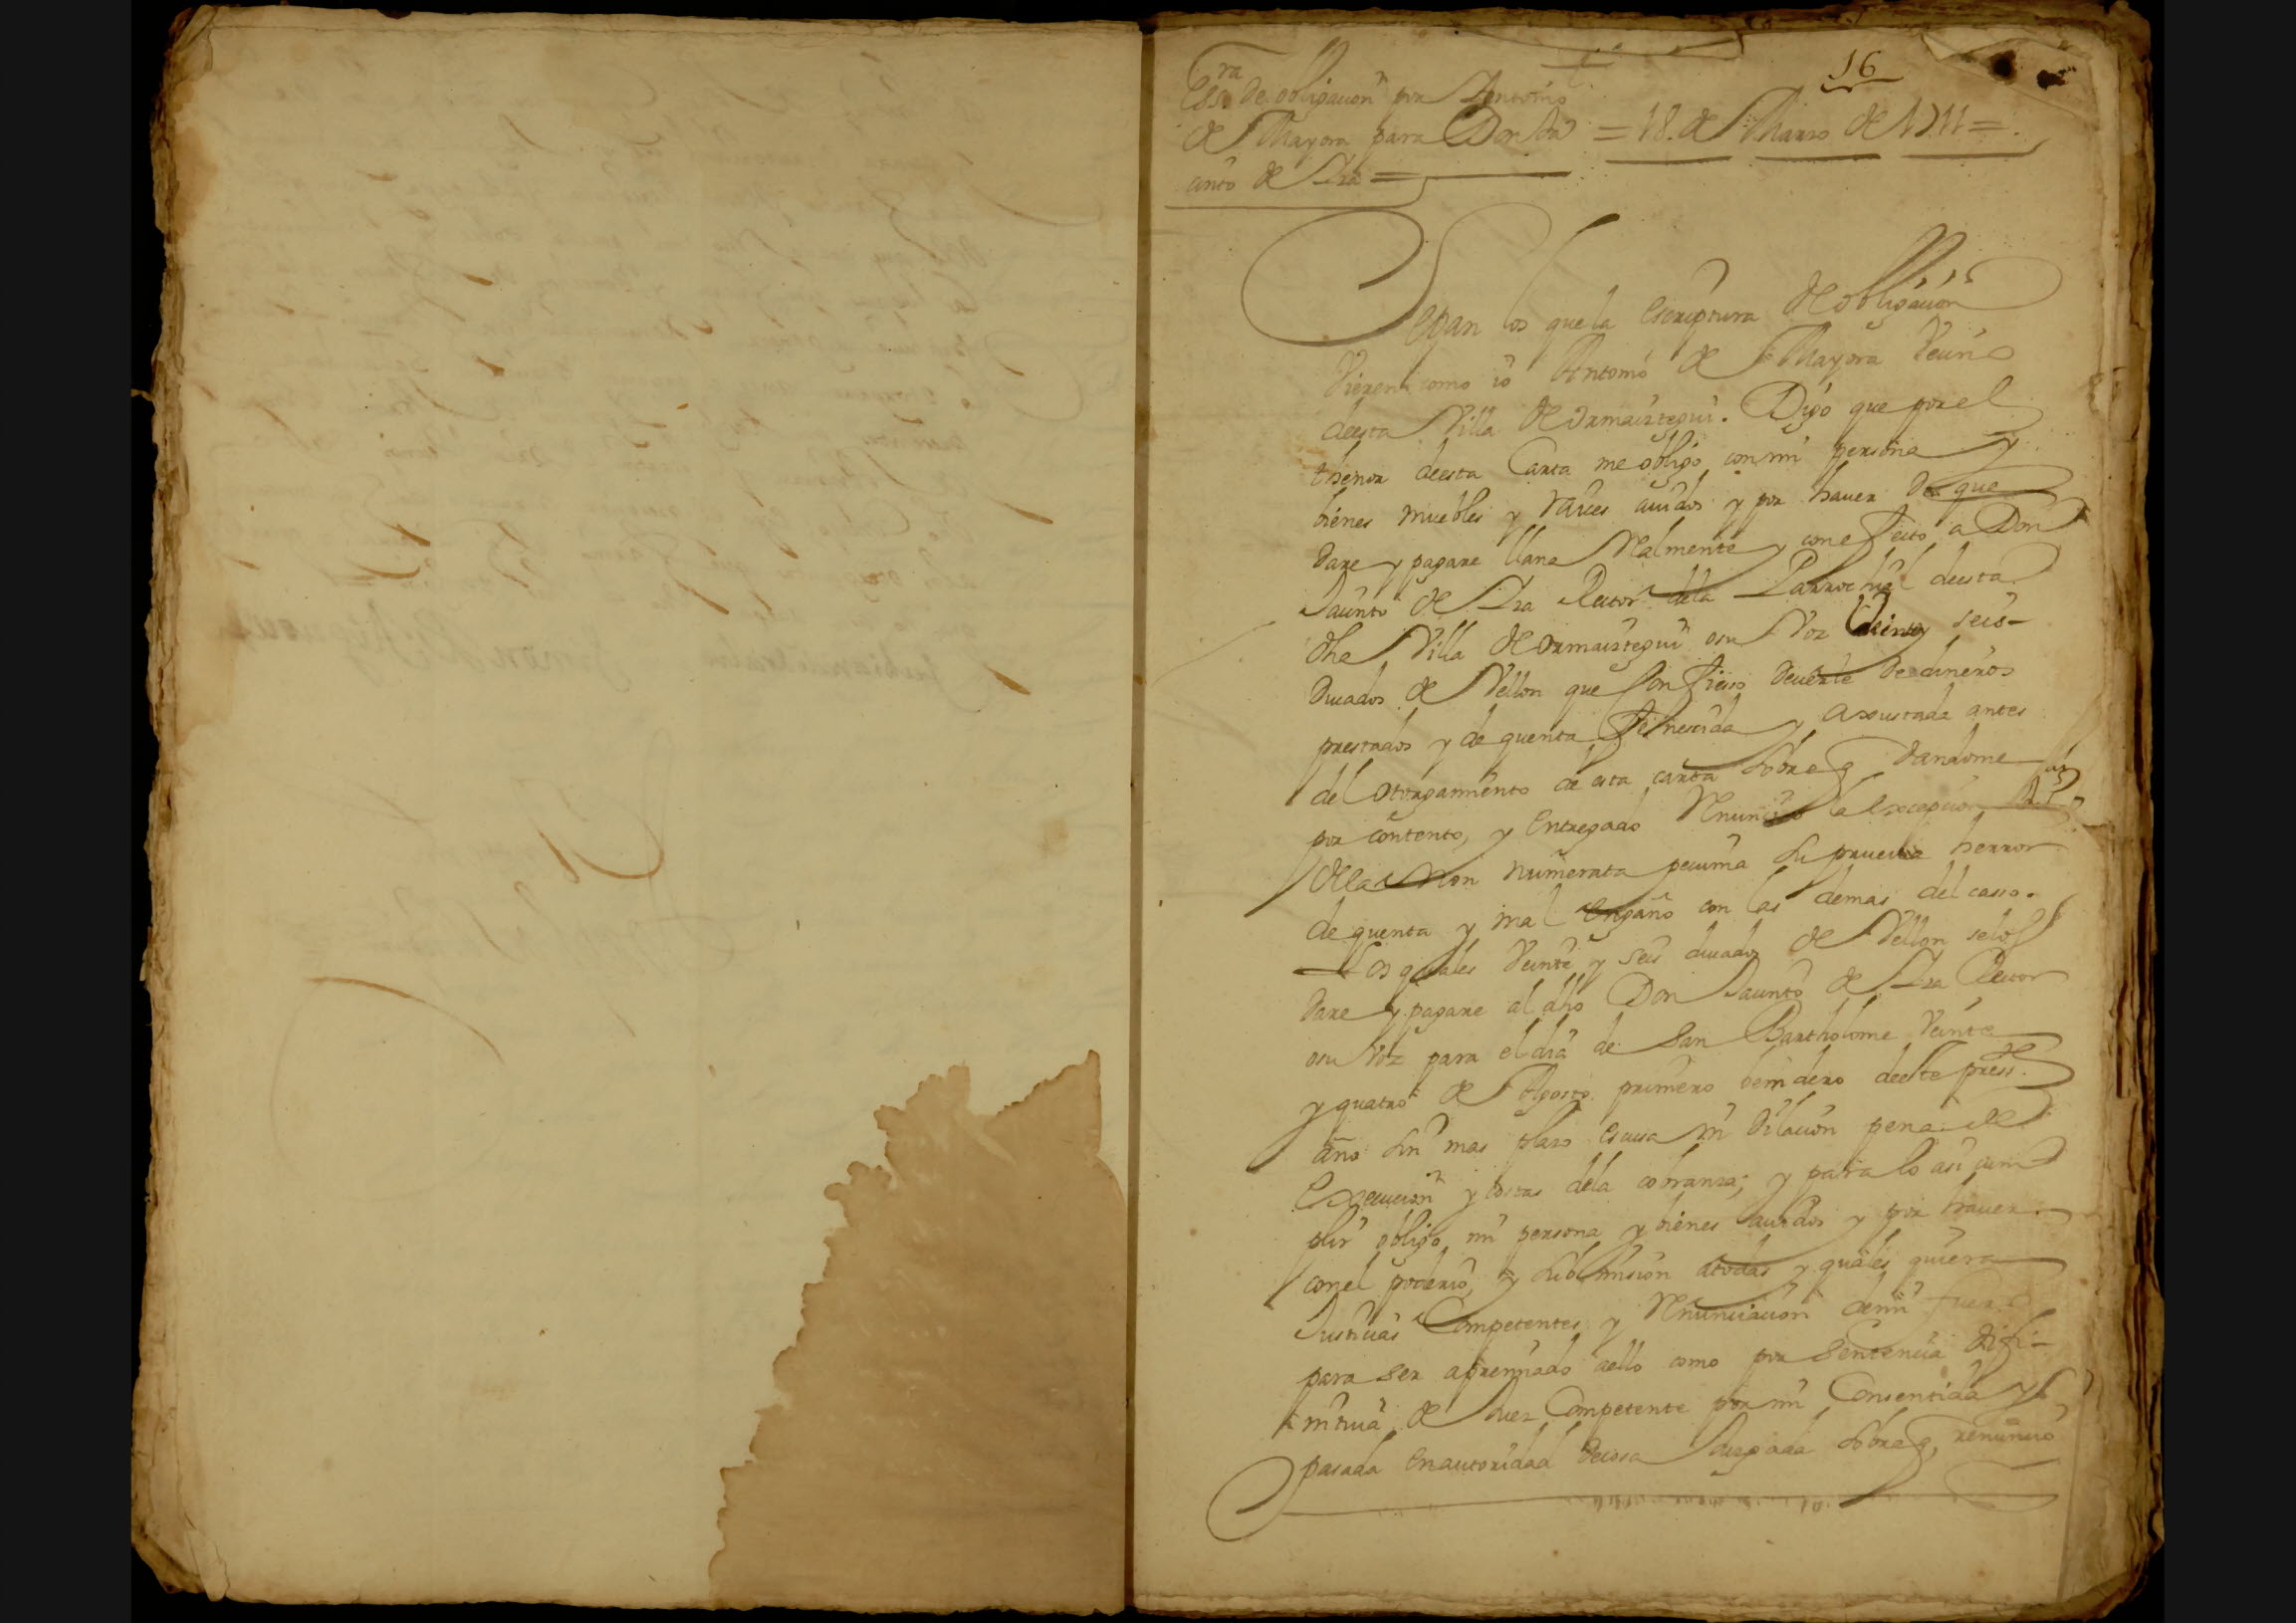 16
Essra de obligaçion por Antonio
de Mayora para Don Ja = 18. de Marzo de 1711 =
cinto de Aza =
Sepan los que la escriptura de obligaçion
vieren como io Antonio de Mayora veçino
de esta Villa de Ormaiztegui. Digo que por el
thenor de esta Carta me obligo con mi persona y
bienes muebles y raiçes auidos y por hauer de que
dare y pagare llana Realmente y con efecto a Don
Jaçinto de Aza Rector de la Parrochial de esta
dha Villa de Ormaiztegui o su Voz Veinte y seis
ducados de Vellon que Confiesso deuerle de dineros
prestados y de quenta fenescida y axustada antes
del otorgamiento de esta carta sobre q dandome
por contento, y entregado Renunçio la excepçion
de la non numerata pecunia su prueba herror
de quenta y mal engaño con las demas del casso.
Los quales veinte y seis ducados de Vellon se los
dare y pagare al dho Don Jaçinto de Aza Rector
o su Voz para el dia de San Bartholome veinte
y quatro de Agosto primero benidero de este press.te
año sin mas plazo escusa ni dilaçion pena de
execuçion y costas de la cobranza; y para lo asi cum
plir obligo mi persona y bienes auidos y por hauer
con el poderio, y submision a todas y quales quiera
Justiçias Competentes y Renunçiaçion de mi fuero
para ser apremiado a ello como por sentençia difi-
nitiua de Juez Competente por mi Consentida y
pasada en autoridad de cosa Juzgada sobre q renunçio